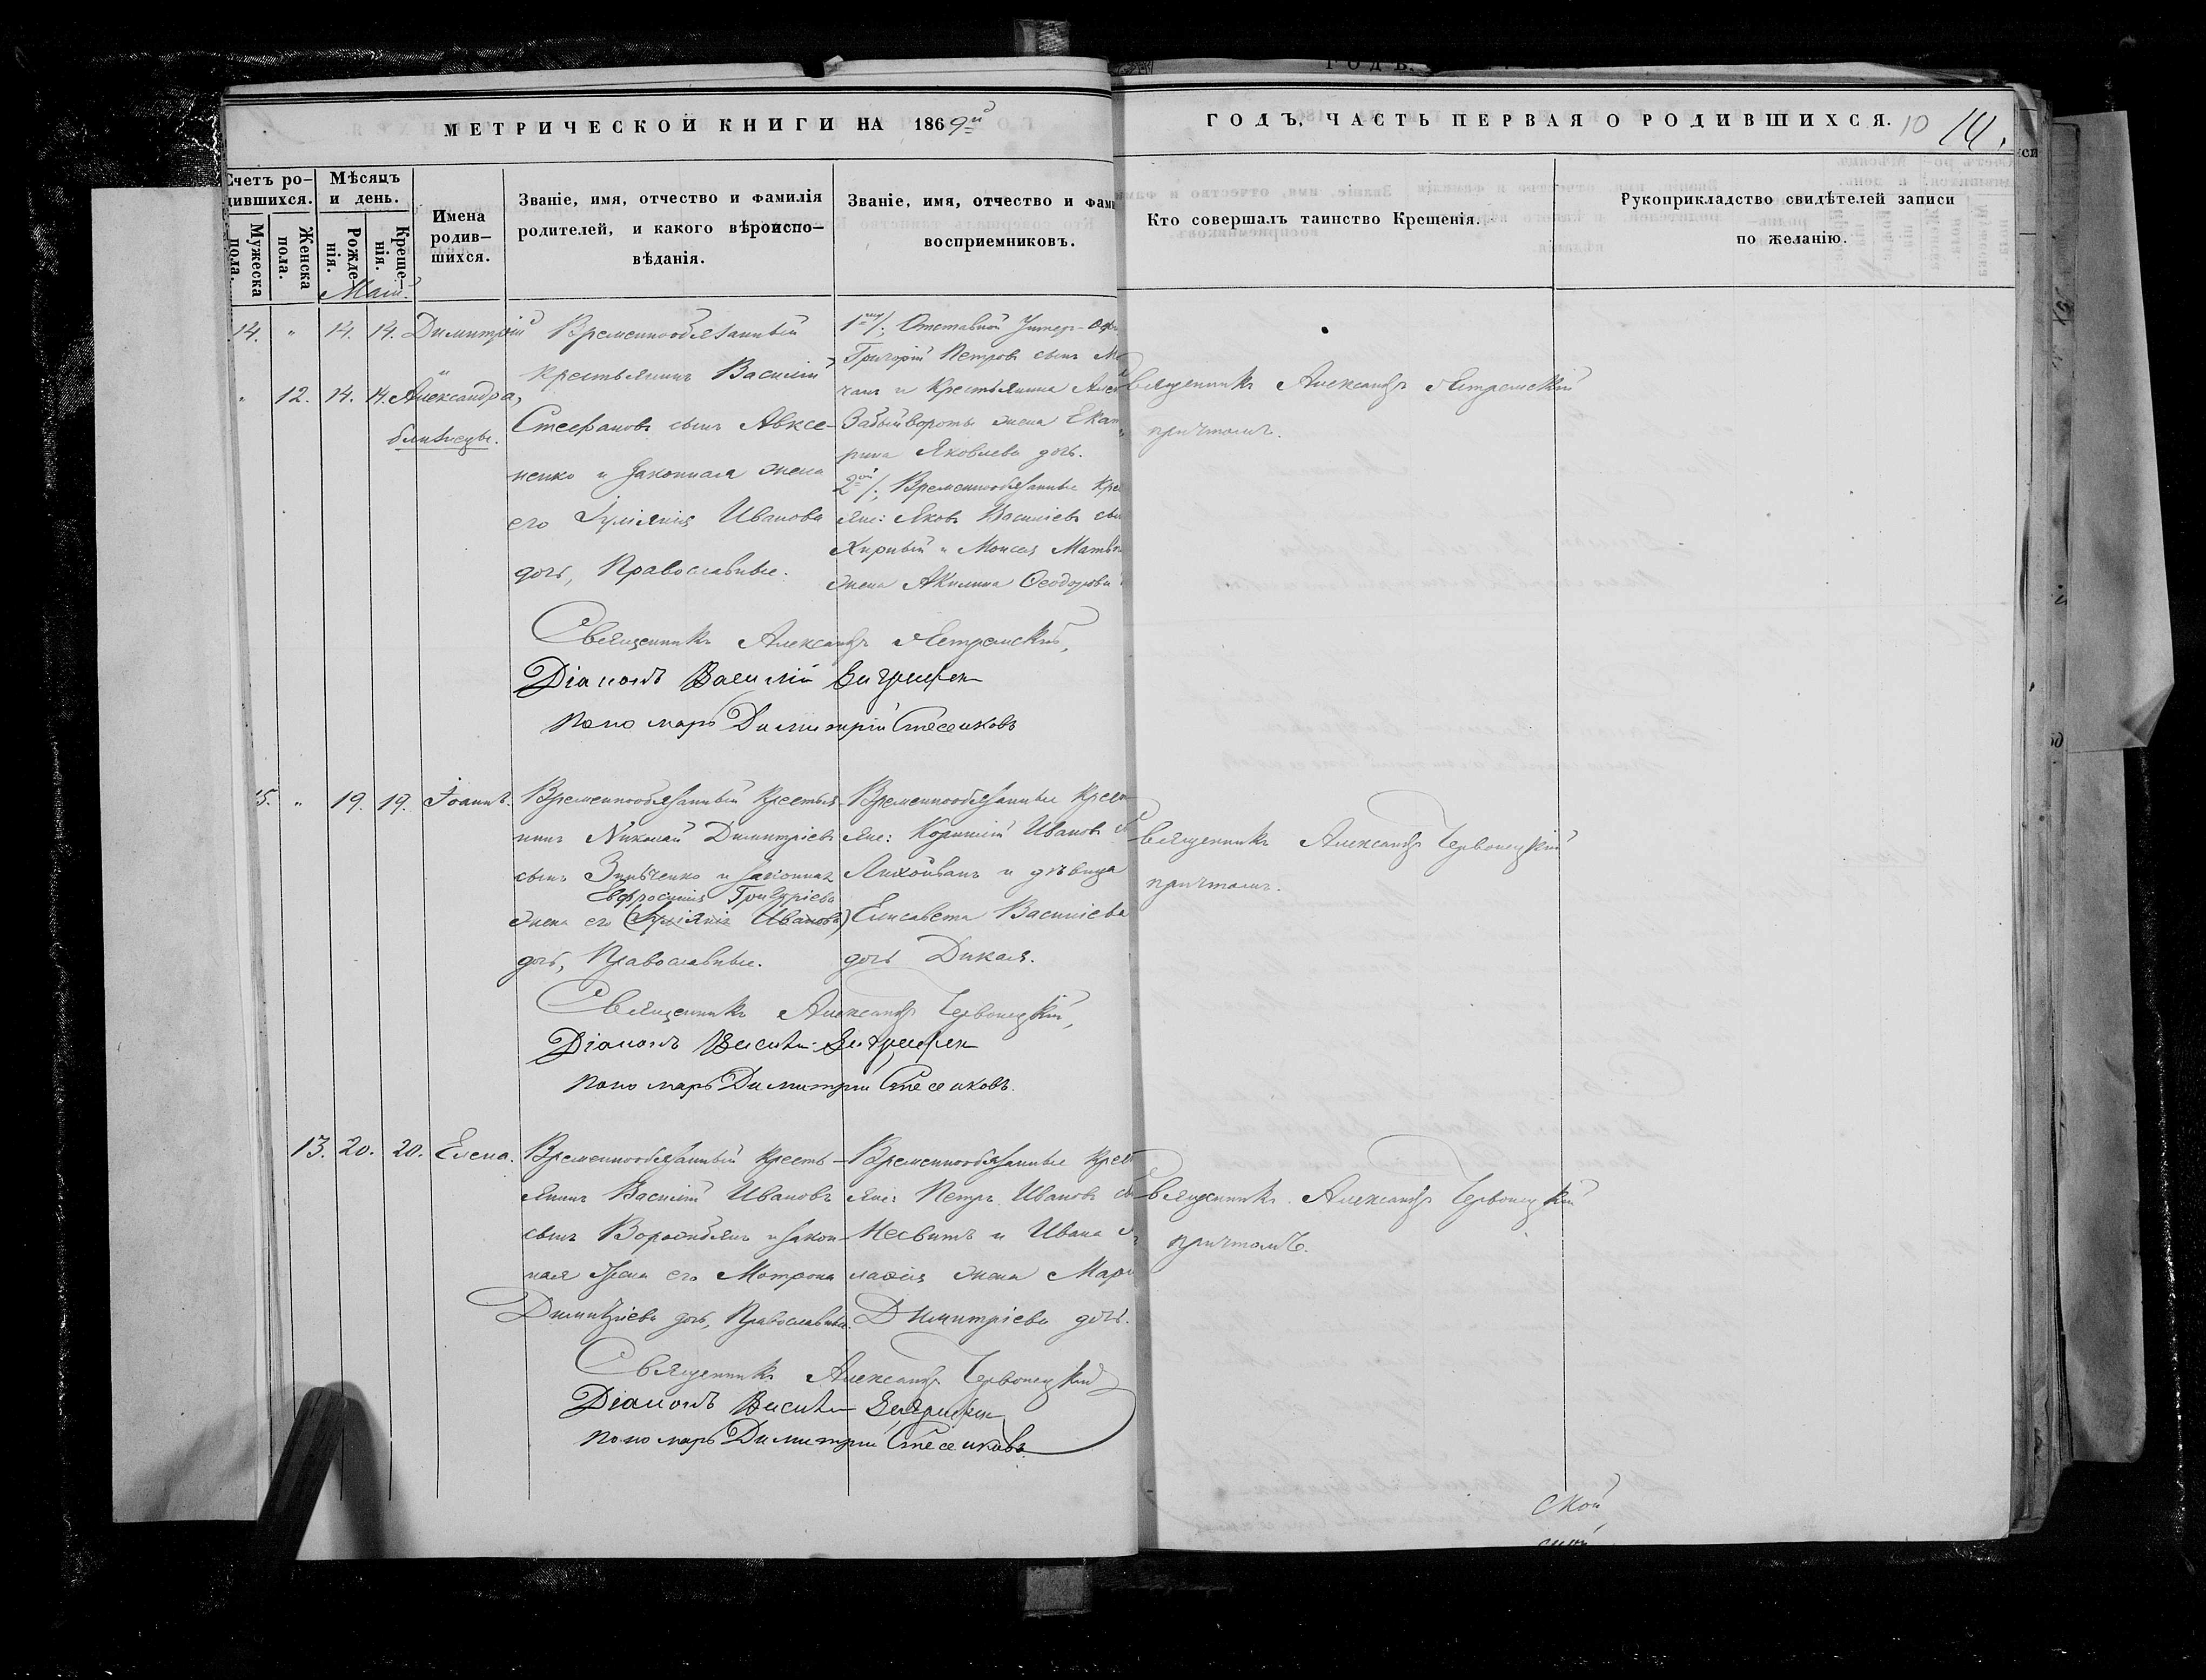 МЕТРИЧЕСКОЙ КНИГИ НА 1869й
ГОДЪ, ЧАСТЬ ПЕРВАЯ О РОДИВШИХСЯ. 10 14.
Счетъ ро-
дившихся.
Мужеска
пола.
Женска
пола.
Мѣсяцъ
и день.
Рожде-
нія.
Креще-
нія.
Имена
родив-
шихся.
Званіе, имя, отчество и фамилія
родителей, и какого вѣроиспо-
вѣданія.
Званіе, имя, отчество и фами
восприемниковъ.
Кто совершалъ таинство Крещенія.
Рукоприкладство свидѣтелей записи
по желанію.
Маій.
14. " 14. 14. Димитрій
" 12. 14. 14. Александра,
близнецы.
Временнообязанный
крестьянинъ Василій
Стефановъ сынъ Авксе-
ненко и законная жена
его Іуліанія Иванова
дочь, Православные.
1го/; Отставной Унтер-Оф
Григорій Петровъ сынъ
чанъ и крестьянина
Забыйвороты жена Екат
рина Яковлева дочь.
2ой/; Временнообязанные кре
яне: Яковъ Василіевъ сы
Хирный и Моисея
жена Акилина Ѳеодорова
Священникъ Александръ
причтомъ.
Священникъ Александръ
Діаконъ Василій
Пономарь Димитрій
15. " 19. 19. Іоаннъ.
Временнообязанный крестья-
нинъ Николай Димитріевъ
сынъ Зинченко и законная
Евфросинія Григоріева
жена его (Іуліанія Иванова)
дочь, Православные.
Временнообязанные крест
яне: Корнилій Ивановъ с
Лихойванъ и дѣвица
Елисавета Василіева
дочь Дикая.
Священникъ Александръ Червонецкій
причтомъ.
Священникъ Александръ Червонецкій,
Діаконъ Василій
Пономарь Димитрій
13. 20. 20. Елена.
Временнообязанный кресть-
янинъ Василій Ивановъ
сынъ и закон-
ная жена его Мотрона
Димитріева дочь, Православные.
Временнообязанные крест
яне: Петръ Ивановъ сы
Несвитъ и Ивана
жена Мари
Димитріева дочь.
Священникъ Александръ Червонецкій
причтомъ.
Священникъ Александръ Червонецкій
Діаконъ Василій
Пономарь Димитрій
ской